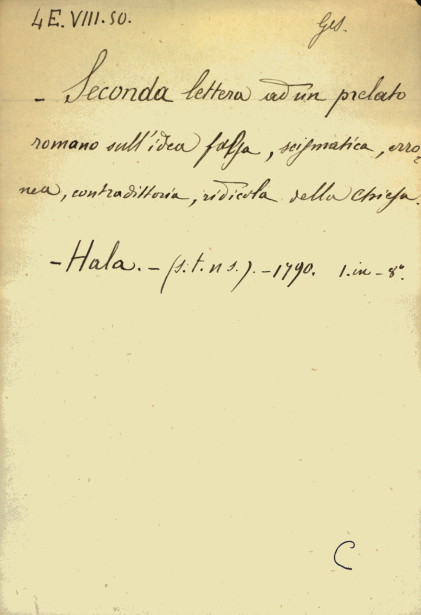 4E.VIII.50.
Ges.
- Seconda lettera ad un prelato
romano sull'idea falsa, scismatica, erro-
nea, contradittoria, ridicola della Chiesa.
- Hala. - (s. t. n s.). - 1790. 1. in - 8°.
C